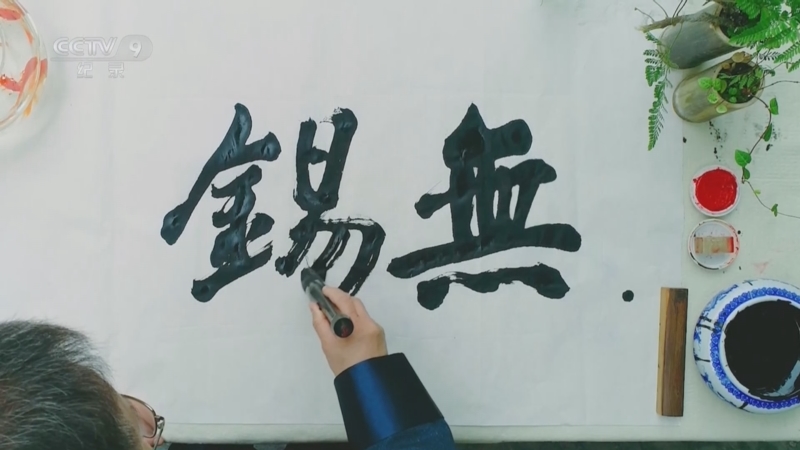 CCTV 9
纪录
無錫